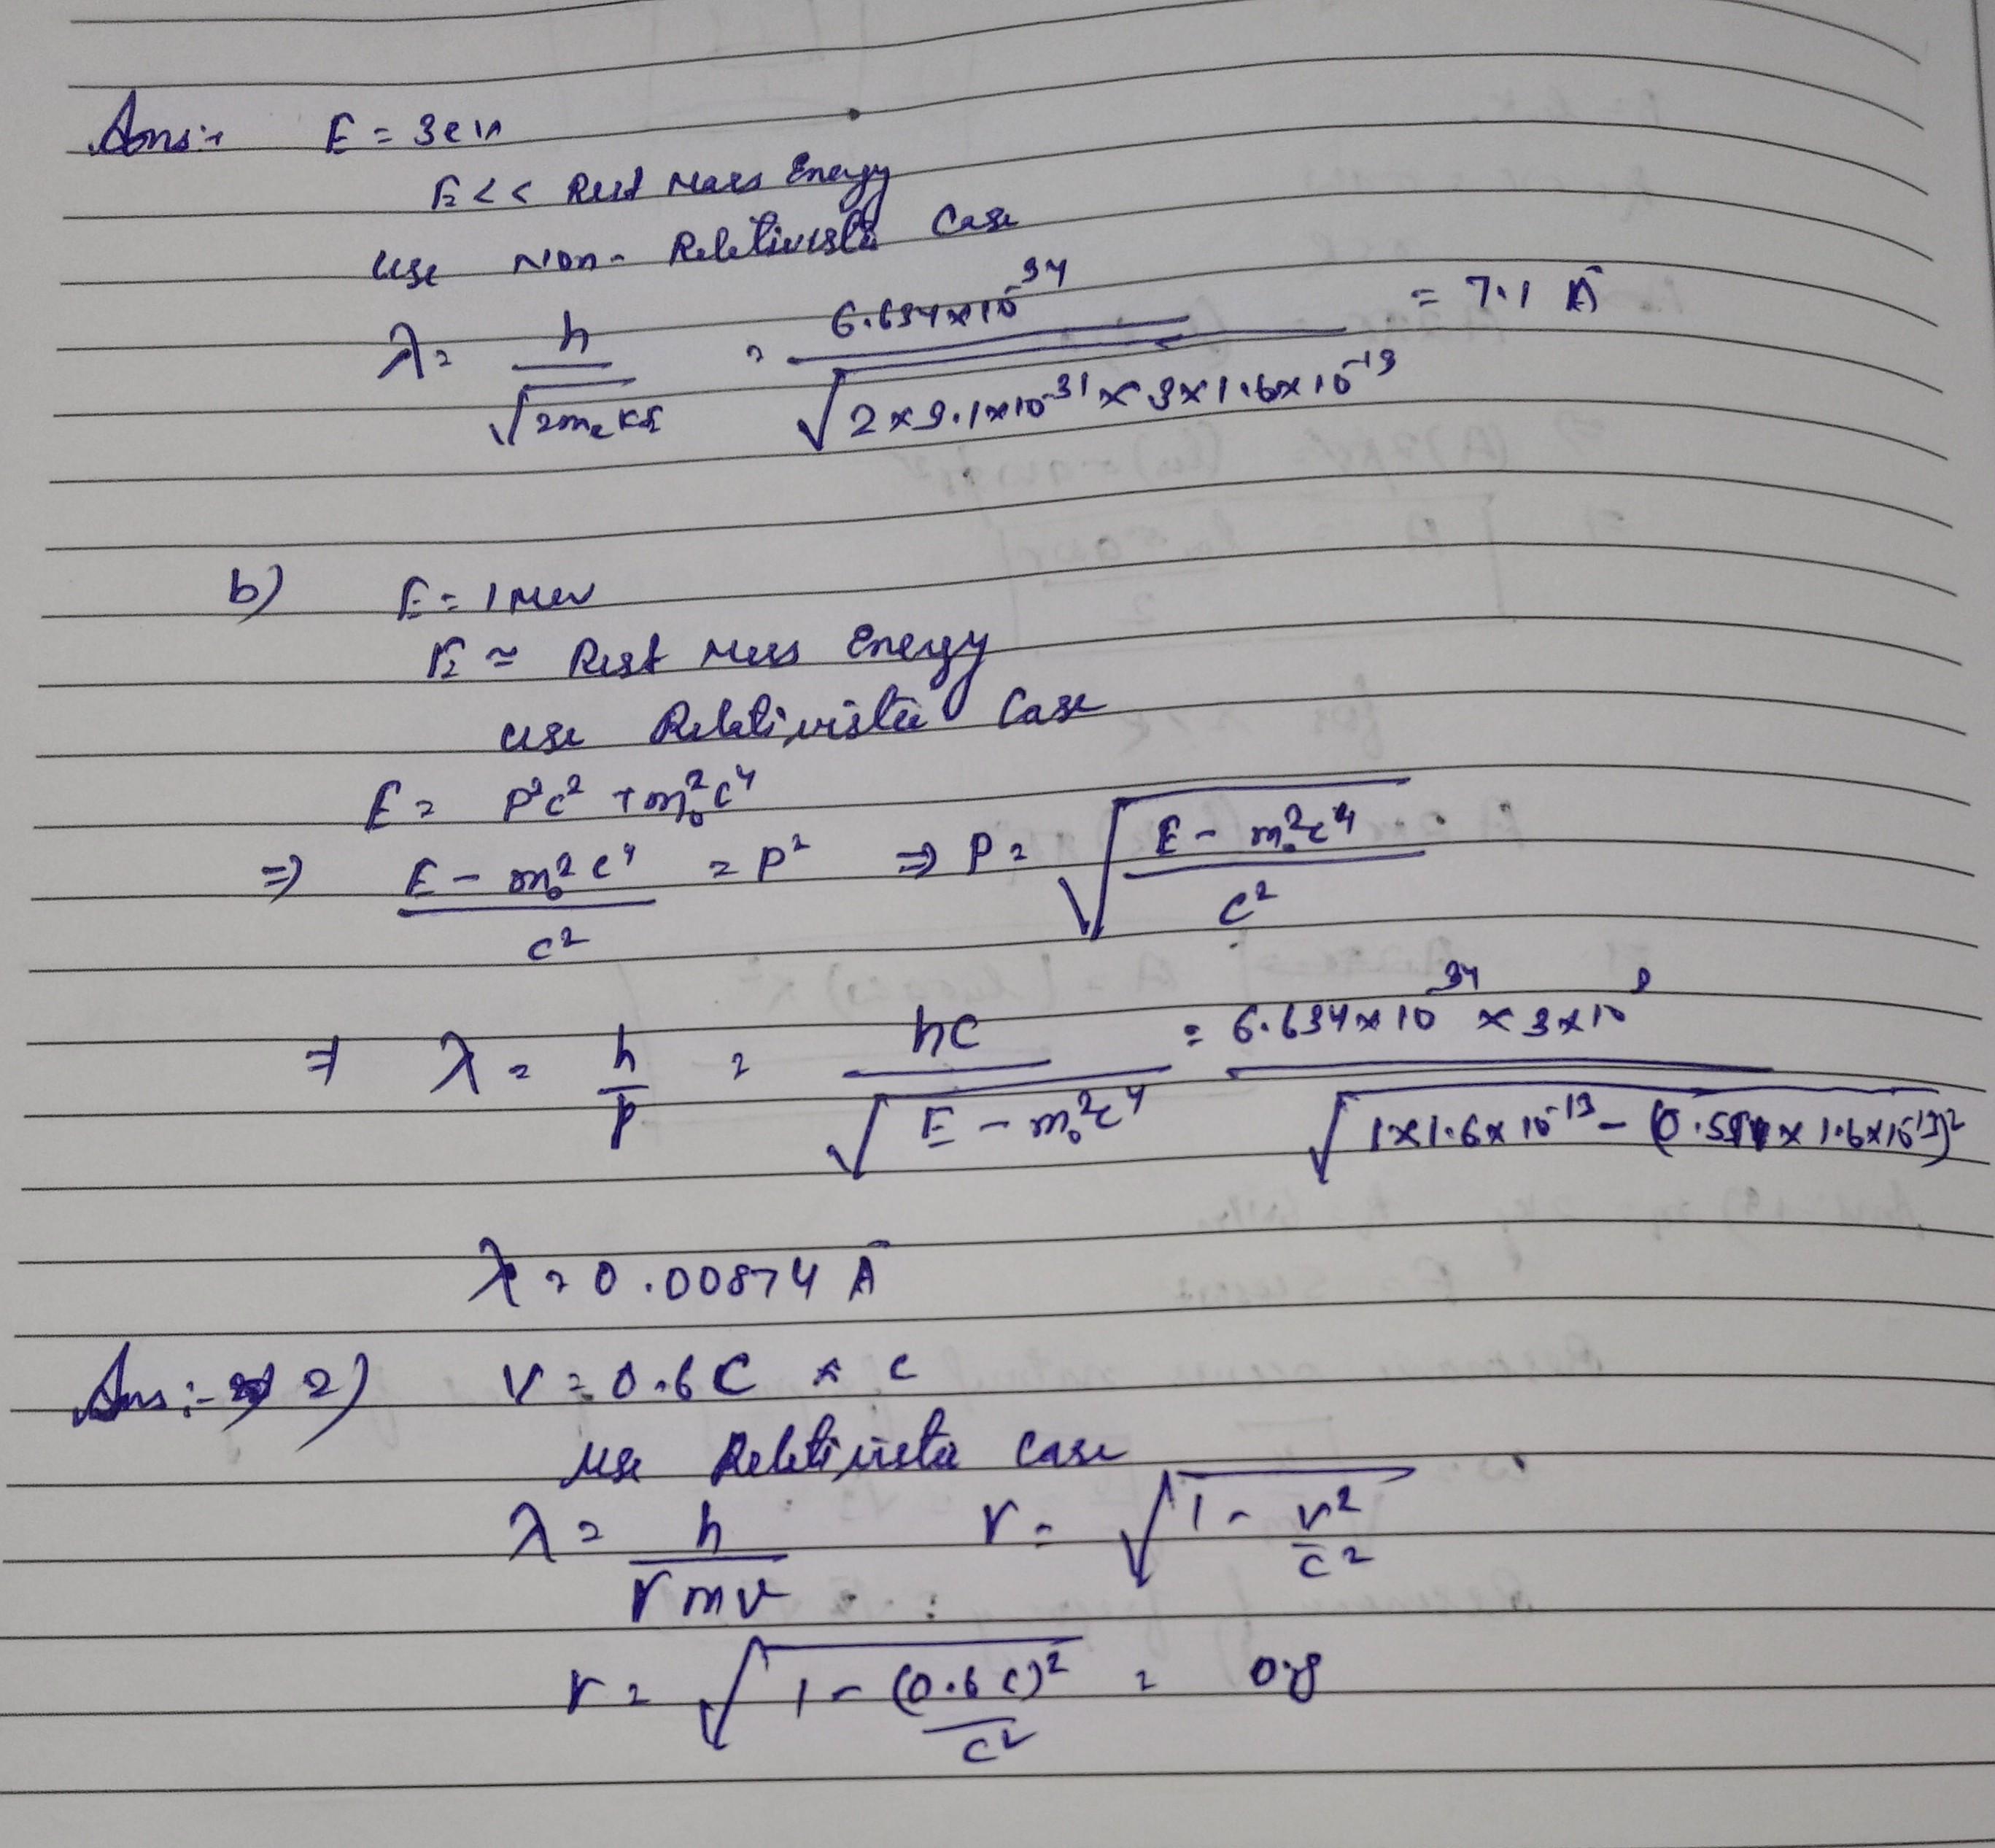 Ans:- E = 3ev
E << Rest Mass Energy
use Non-Relativistic Case
λ = h / √(2mₑKE) = 6.634×10⁻³⁴ / √(2×9.1×10⁻³¹×3×1.6×10⁻¹⁹) = 7.1 Å
b) E = 1 Mev
E ≈ Rest Mass Energy
use Relativistic Case
E = P²c² + m₀²c⁴
⇒ (E - m₀²c⁴) / c² = P² ⇒ P = √((E - m₀²c⁴) / c²)
⇒ λ = h/P = hc / √(E - m₀²c⁴) = 6.634×10³⁴ × 3×10⁸ / √(1×1.6×10⁻¹³ - (0.511×1.6×10⁻¹³)²
λ = 0.00874 Å
Ans:- 2) V = 0.6C × c
use Relativistic Case
λ = h / γmv γ = √(1 - v²/c²)
γ = √(1 - (0.6c)²/c²) = 0.8